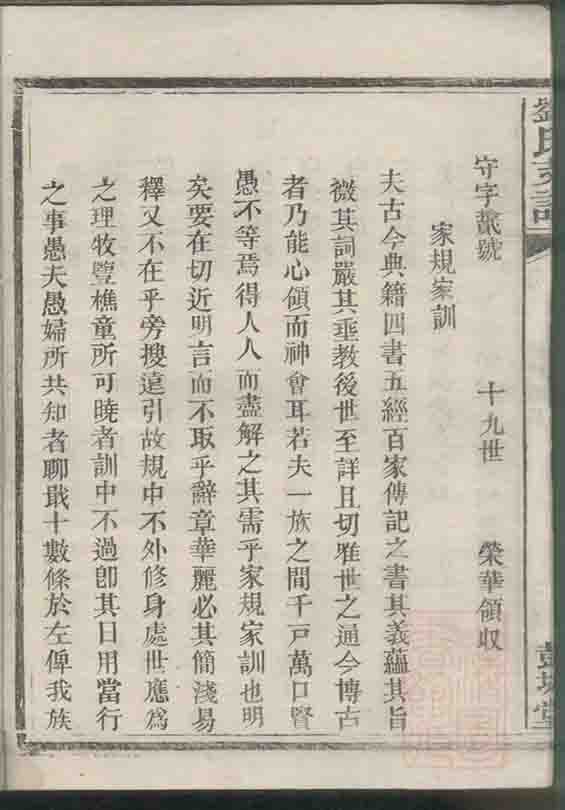 劉氏支譜
彭城堂
守字號　十九世　榮華領収
家規家訓
夫古今典籍四書五經百家傳記之書其義蘊其旨
微其詞嚴其垂教後世至詳且切雅世之通今博古
者乃能心領而神會耳若夫一族之間千戸萬口賢
愚不等焉得人人而盡解之其需乎家規家訓也明
矣要在切近明言而不取乎辭章華麗必其簡淺易
釋又不在乎旁搜遠引故規中不外修身處世應爲
之理牧豎樵童所可曉者訓中不過卽其日用當行
之事愚夫愚婦所共知者聊戢十數條於左俾我族